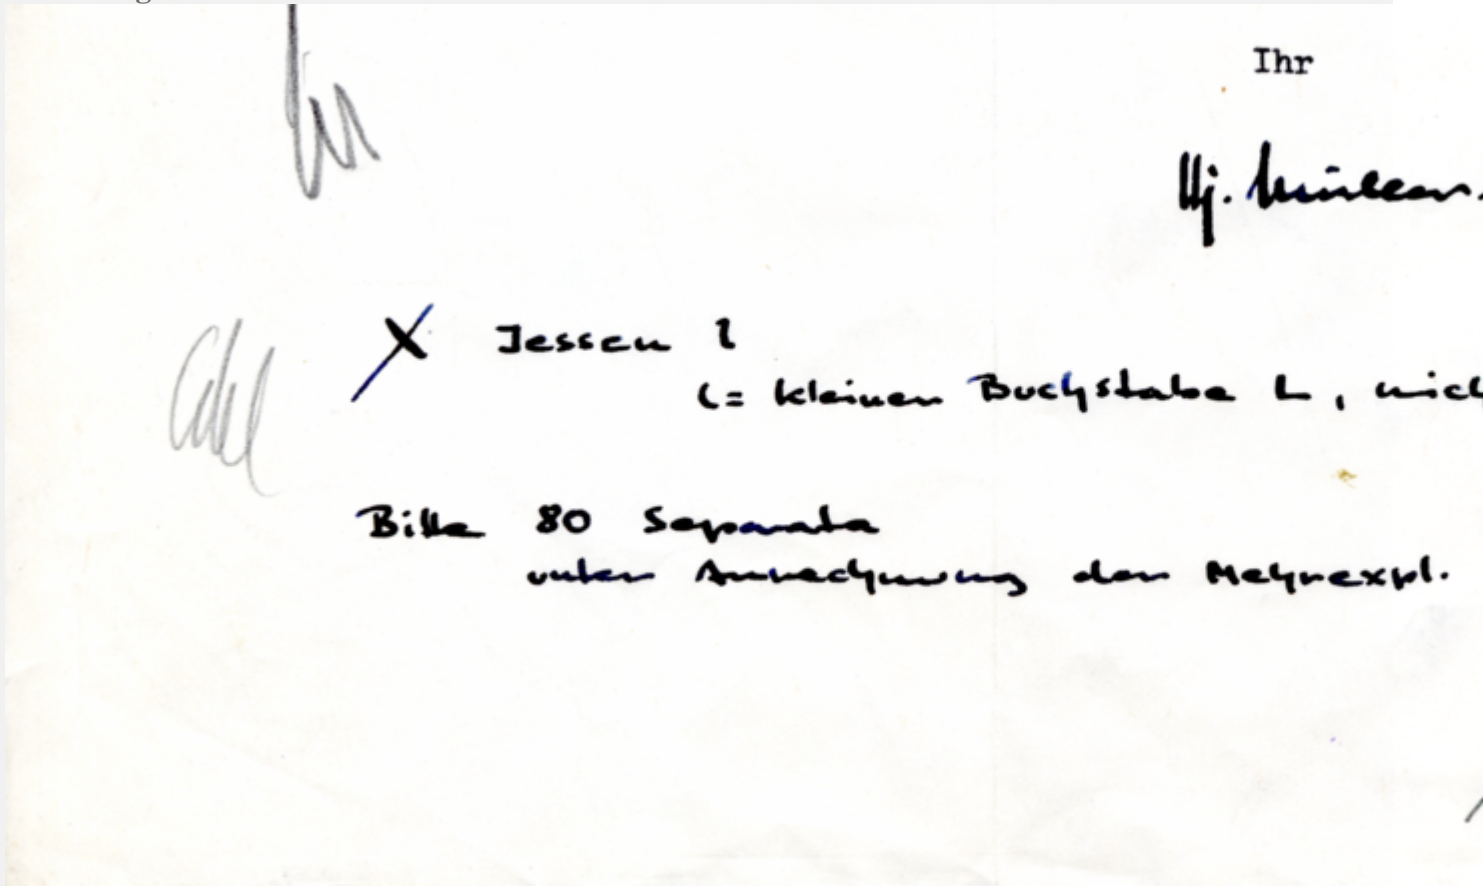 Ihr
Jessen l
(= kleiner Buchstabe L, nich
Bitte 80 Separata
unter Anrechnung der Mehrexpl.